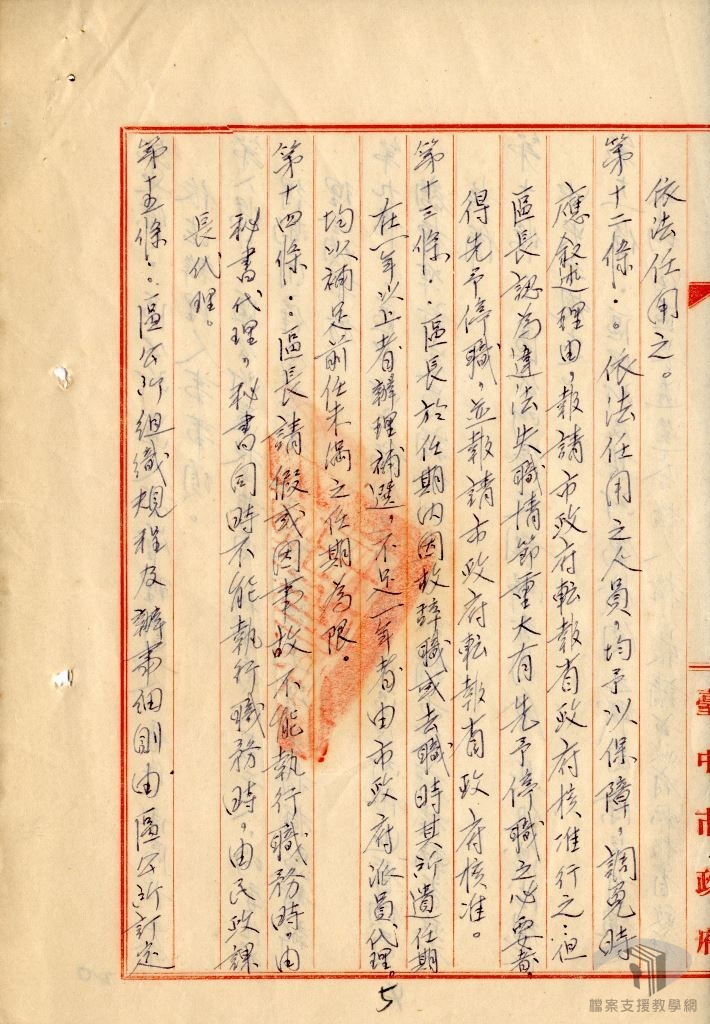 依法任用之。
第十二條：依法任用之人員，均予以保障，調免時
應敘述理由，報請市政府転報省政府核准行之，但
區長認為違法失職情節重大有先予停職之必要者，
得先予停職，並報請市政府転報省政府核准。
第十三條：區長於任期內因故辞職或去職時其所遺任期
在一年以上者辦理補選，不足一年者由市政府派員代理。
均以補足前任未滿之任期為限。
第十四條：區長請假或因事故不能執行職務時，由
秘書代理，秘書同時不能執行職務時，由民政課
長代理。
第十五條：區公所組織規程及辦事細則由區公所訂定
臺中市政府
5
檔案支援教學網